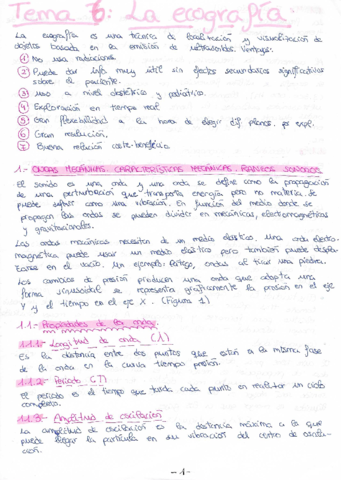 Tema 6: La ecografía.
La ecografía es una técnica de localización y visualización de
objetos basada en la emisión de ultrasonidos. Ventajas:
① No usa radiaciones.
② Puede dar info muy útil sin efectos secundarios significativos
sobre el paciente.
③ uso a nivel obstétrico y pediátrico.
④ Exploración en tiempo real
⑤ Gran flexibilidad a la hora de elegir dif. planos, pe expl.
⑥ Gran resolución.
⑦ Buena relación coste-beneficio.
1.- ONDAS MECÁNICAS. CARACTERÍSTICAS MECÁNICAS. RANGOS SONOROS
El sonido es una onda y una onda se define como la propagación
de una perturbación que transporta energía pero no materia. Se
puede definir como una vibración. En función del medio donde se
propagan las ondas se pueden dividir en mecánicas, electromagnéticas
y gravitacionales.
Las ondas mecánicas necesitan de un medio elástico. Una onda electro-
magnética puede usar un medio elástico pero también puede despla-
zarse en el vacío. Un ejemplo: látigo, ondas al tirar una piedra.
Los cambios de presión producen una onda que adopta una
forma sinusoidal se representa gráficamente la presión en el eje
Y y el tiempo en el eje X. (Figura 1)
1.1.- Propiedades de las ondas:
1.1.1- Longitud de onda (λ)
Es la distancia entre dos puntos que están a la misma fase
de la onda en la curva tiempo presión.
1.1.2- Periodo (T)
El periodo es el tiempo que tarda cada punto en realizar un ciclo
completo.
1.1.3- Amplitud de oscilación
La amplitud de oscilación es la distancia máxima a la que
puede llegar la partícula en su vibración del centro de oscila-
ción.
-1-